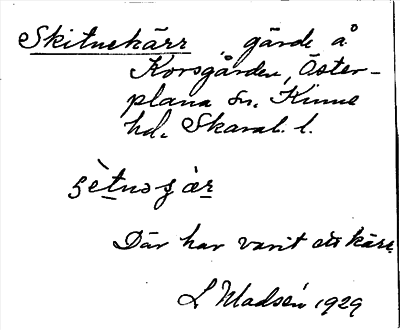 Skitnekärr, gärde å
Korsgården, Öster-
plana sn. Kinne
hd. Skarab. l.
Där har varit ett kärr.
L Madsén 1929